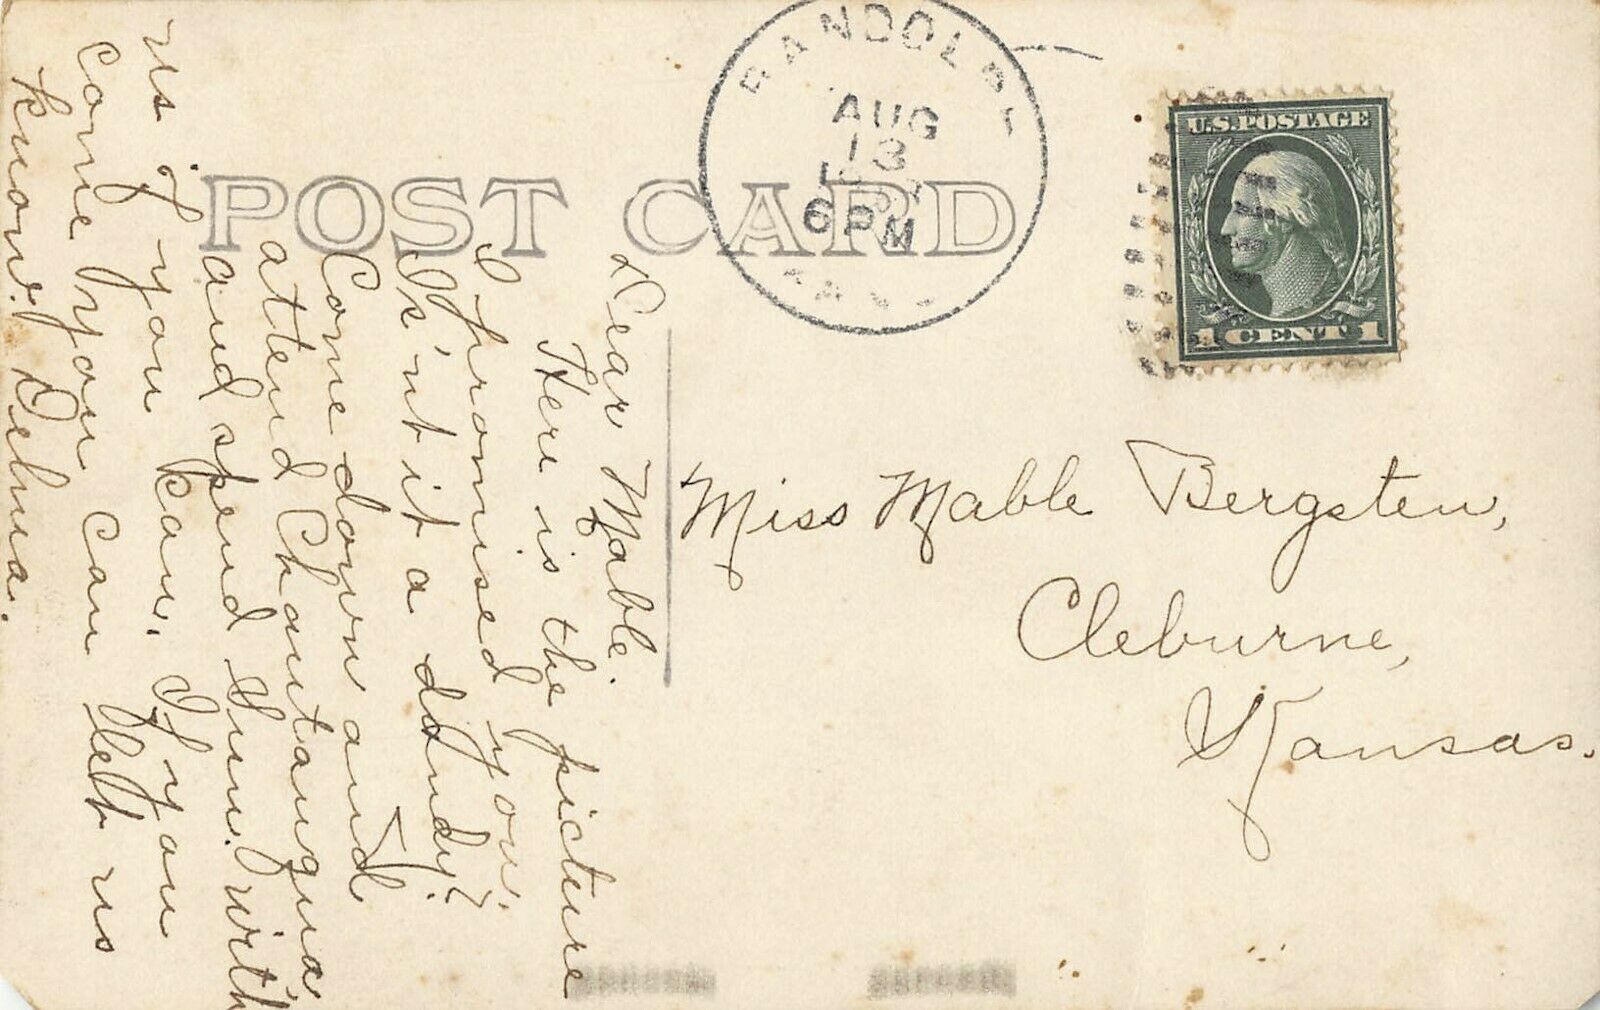 POST CARD
RANDOLPH
AUG
13
6 PM
KANS
U.S. POSTAGE
1 CENT 1
Dear Mable.
Here is the picture
I promised you.
Is'nt it a dandy?
Come down and
attend Chautauqua
and spend Sun. with
us if you kan. If you
come you can let us
know. Delma.
Miss Mable Bergsten,
Cleburne,
Kansas.